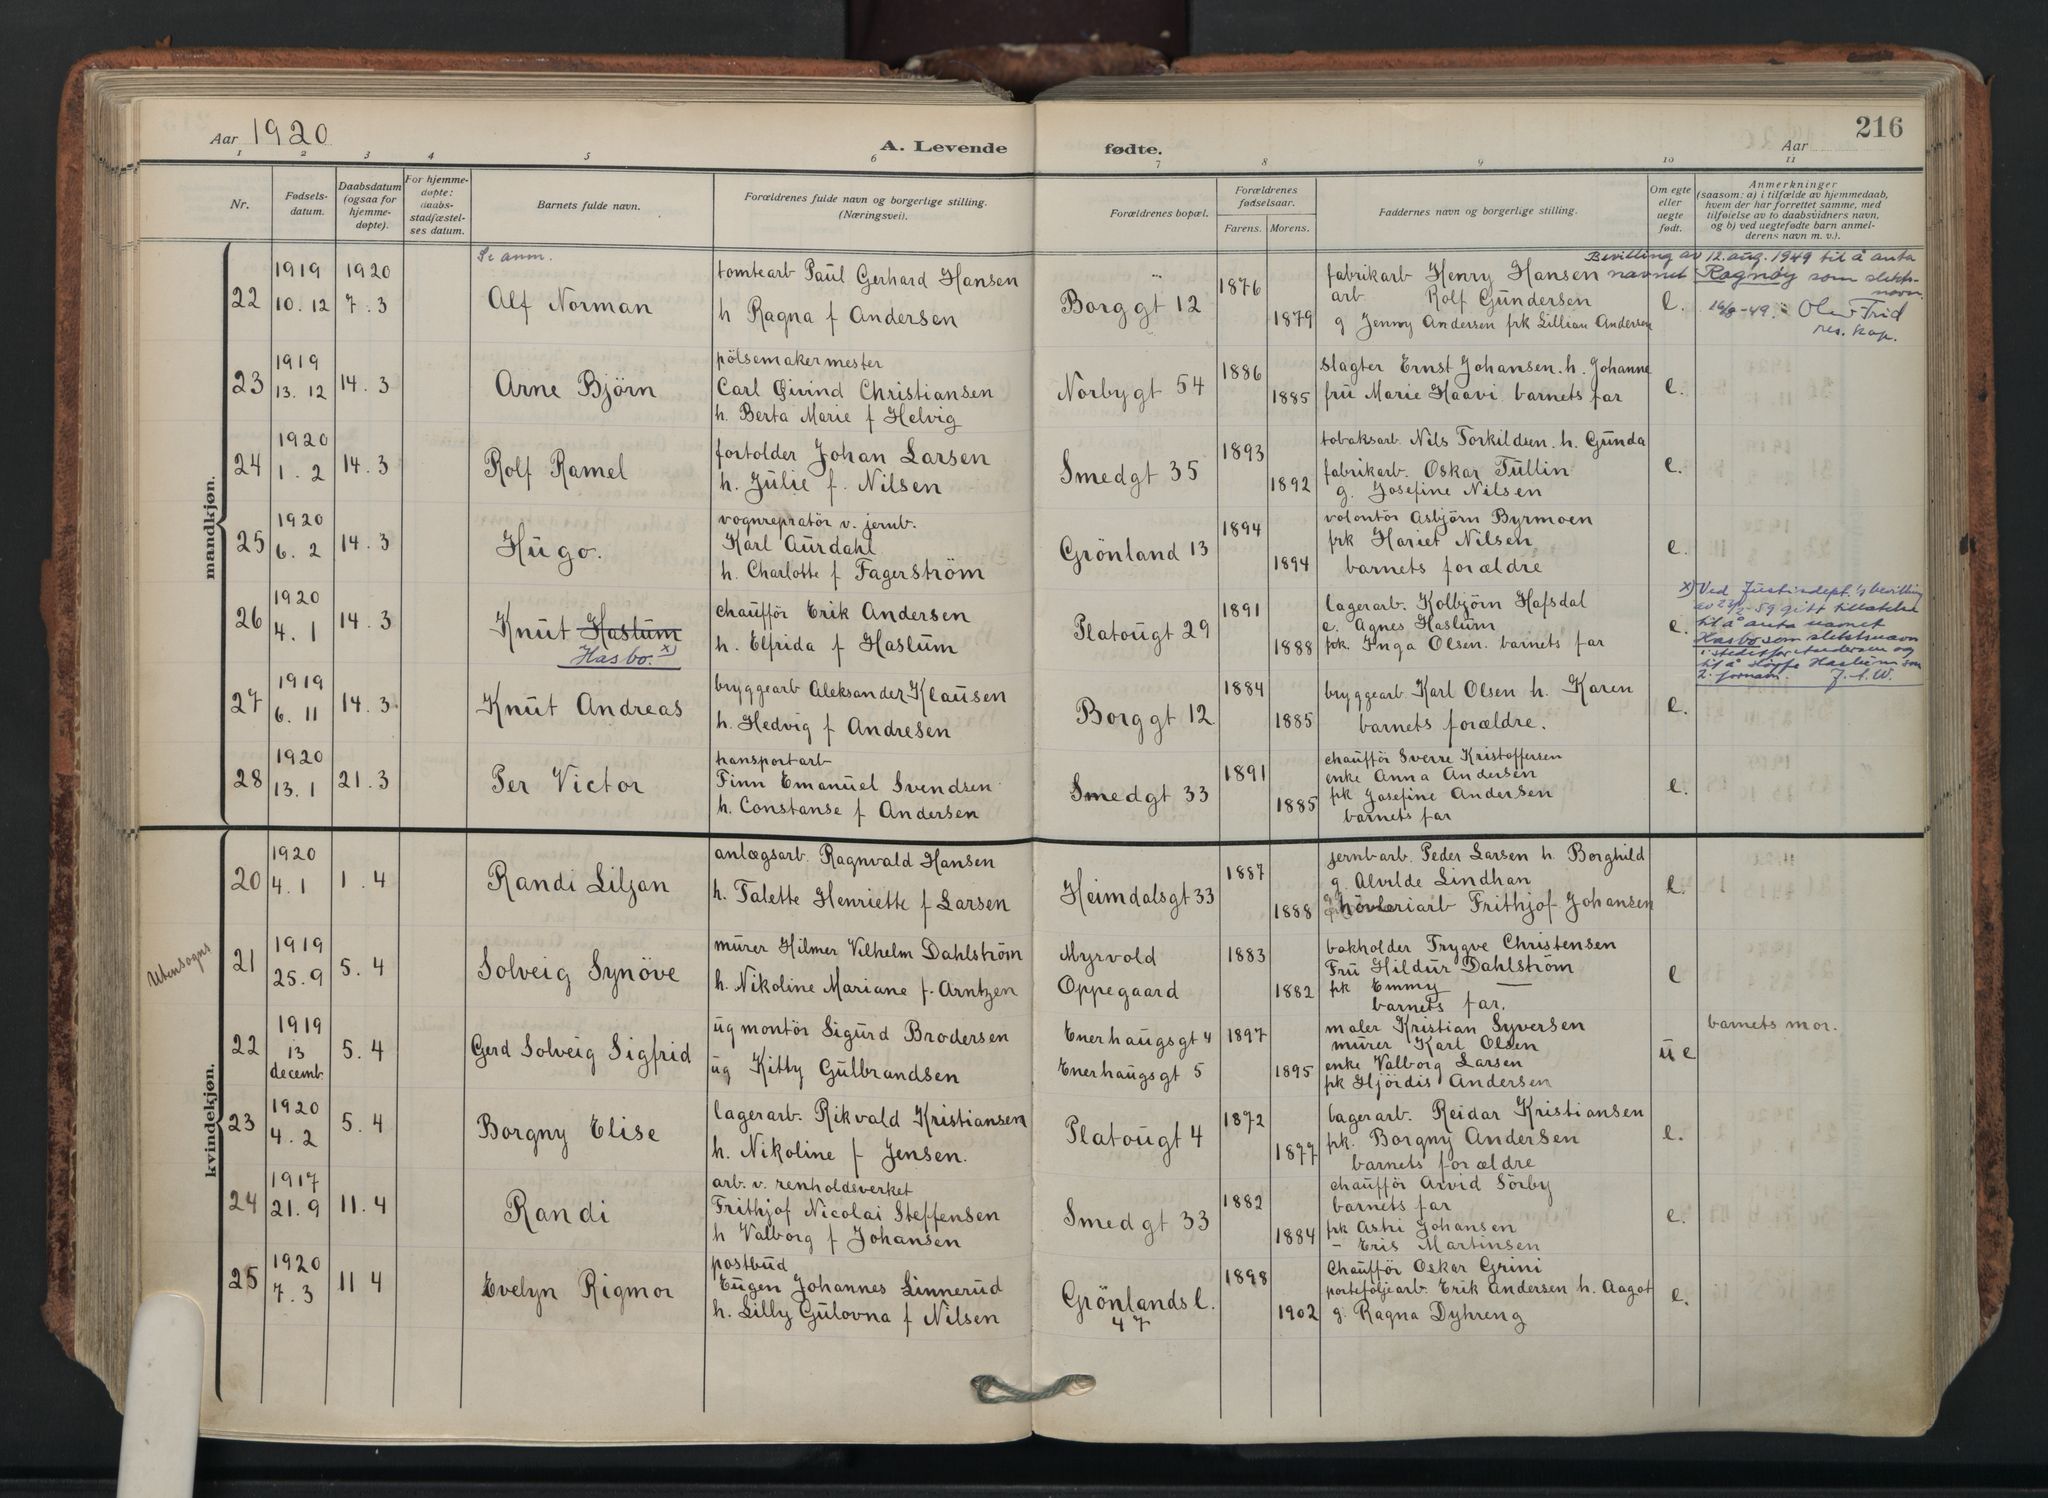 Aar 1920
A. Levende fødte.
216
Aar
1 2 3 4 5 6 7 8 9 10 11
Nr.
Fødsels-
datum.
Daabsdatum
(ogsaa for
hjemme-
døpte).
For hjemme-
døpte:
daabs-
stadfæstel-
ses datum.
Barnets fulde navn.
Forældrenes fulde navn og borgerlige stilling.
(Næringsvei).
Forældrenes bopæl.
Forældrenes
fødselsaar.
Farens. Morens.
Faddernes navn og borgerlige stilling.
Om egte
eller
uegte
født.
Anmerkninger
(saasom: a) i tilfælde av hjemmedaab,
hvem der har forrettet samme, med
tilføielse av to daabsvidners navn,
og b) ved uegtefødte barn anmel-
derens navn m. v.).
mandkjøn.
Se anm.
22
1919
10. 12
1920
7. 3
Alf Norman
tomtearb Paul Gerhard Hansen
h Ragna f Andersen
Borggt 12
1876
1879
fabrikarb Henry Hansen
arb. Rolf Gundersen
g Jenny Andersen frk Lillian Andersen
e.
Bevilling av 12. aug. 1949 til å anta
navnet Ragnøy som slekts-
navn.
19/8-49. Olav Frid
res. kap.
23
1919
13. 12
14. 3
Arne Björn
pölsemakermester
Carl Öivind Christiansen
h. Berta Marie f Helvig
Norbygt 54
1886
1885
slagter Ernst Johansen. h. Johanne
fru Marie Haavi. barnets far
e.
24
1920
1. 2
14. 3
Rolf Ramel
fortolder Johan Larsen
h. Julie f. Nilsen
Smedgt 35
1893
1892
tobaksarb. Nils Torkildsen. h. Gunda
fabrikarb. Oskar Tullin
g. Josefine Nilsen
e.
25
1920
6. 2
14. 3
Hugo.
vognrepratör v. jernb.
Karl Aurdahl
h. Charlotte f Fagerström
Grönland 13
1894
1894
volontör Asbjörn Byrmoen
frk Hariet Nilsen
barnets forældre
e.
26
1920
4. 1
14. 3
Knut Haslum
Hasbo. x)
chaufför Erik Andersen
h. Elfrida f Haslum
Platougt 29
1891
1888
lagerarb. Kolbjörn Hafsdal
e. Agnes Haslum
frk. Inga Olsen. barnets far
e.
x) Ved Justisdept.'s bevilling
av 23/2-59 gitt tillatelse
til å anta navnet
Hasbo som slektsnavn
i stedet for Andersen og
til å sløyfe Haslum som
2. fornavn. J. S. W.
27
1919
6. 11
14. 3
Knut Andreas
bryggearb Aleksander Klausen
h. Hedvig f Andresen
Borggt 12
1884
1885
bryggearb. Karl Olsen h. Karen
barnets forældre.
e.
28
1920
13. 1
21. 3
Per Victor
transportarb
Finn Emanuel Svendsen
h. Constanse f Andersen
Smedgt 33
1891
1885
chaufför Sverre Kristoffersen
enke Anna Andersen
frk Josefine Andersen
barnets far
e.
kvindekjøn.
20
1920
4. 1
1. 4
Randi Liljan
anlægsarb. Ragnvald Hansen
h. Talette Henriette f Larsen
Heimdalsgt 33
1887
1888
jernbarb. Peder Larsen h. Borghild
g. Alvilde Lindhan
hövleriarb Frithjof Johansen
e.
Utensogns
21
1919
25. 9
5. 4
Solveig Synöve
murer Hilmer Vilhelm Dahlström
h. Nikoline Mariane f. Arntzen
Myrvold
Oppegaard
1883
1882
bokholder Trygve Christensen
Fru Hildur Dahlström
frk Emmy —
barnets far.
e
22
1919
13
decemb
5. 4
Gerd Solveig Sigfrid
ug montör Sigurd Brodersen
ug Kitty Gulbrandsen
Enerhaugsgt 4
Enerhaugsgt 5
1897
1895
maler Kristian Syversen
murer Karl Olsen
enke Valborg Larsen
frk Hjördis Andersen
u e
barnets mor.
23
1920
4. 2
5. 4
Borgny Elise
lagerarb. Rikvald Kristiansen
h. Nikoline f Jensen.
Platougt 4
1872
1877
lagerarb. Reidar Kristiansen
frk. Borgny Andersen
barnets forældre
e.
24
1917
21. 9
11. 4
Randi
arb. v. renholdsverket
Frithjof Nicolai Steffensen
h Valborg f Johansen
Smedgt 33
1882
1884
chaufför Arvid Sörby
barnets far
frk Asti Johansen
- Eris Martinsen
e.
25
1920
7. 3
11 4
Evelyn Rigmor
postbud
Eugen Johannes Linnerud
h. Lilly Gulovna f Nilsen
Grönlandsl.
47
1898
1902
Chaufför Oskar Grini
portefoljearb. Erik Andersen h. Aagot
g. Ragna Dyhreng
e.